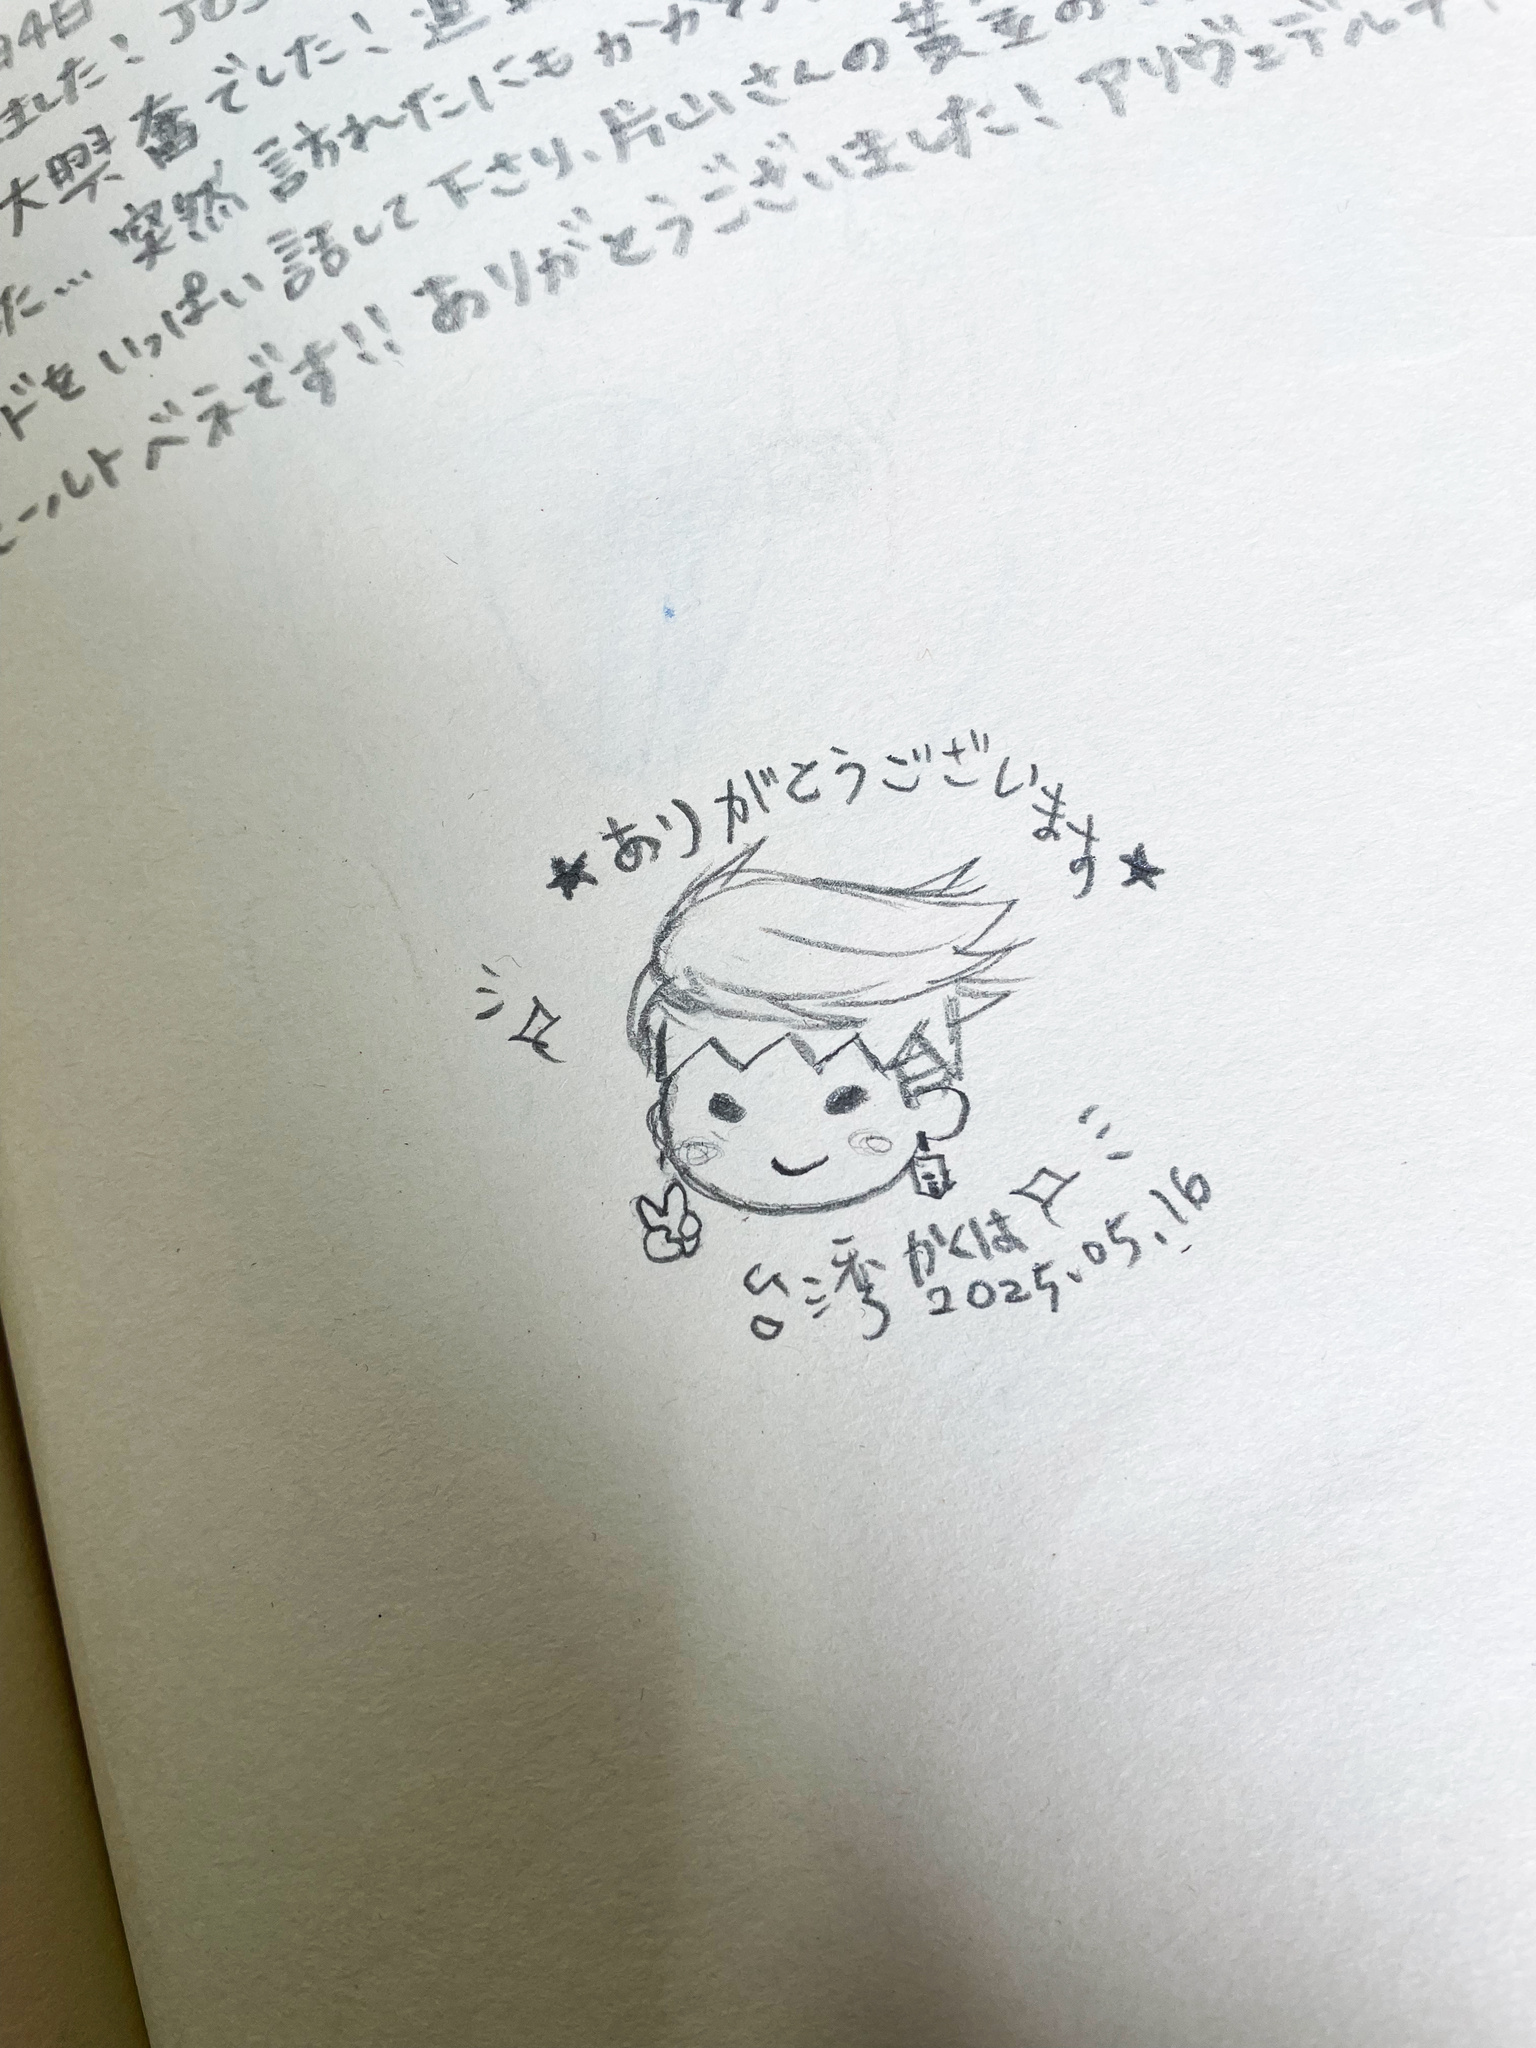 月4日
ました! JOJ
大興奮でした!
た… 突然訪れたにもかか
ドをいっぱい話して下さり、片山さんの黄金の
ールトベネです!! ありがとうございました! アリヴェデルチ
★ありがとうございます★
台湾 がくは
2025.05.16